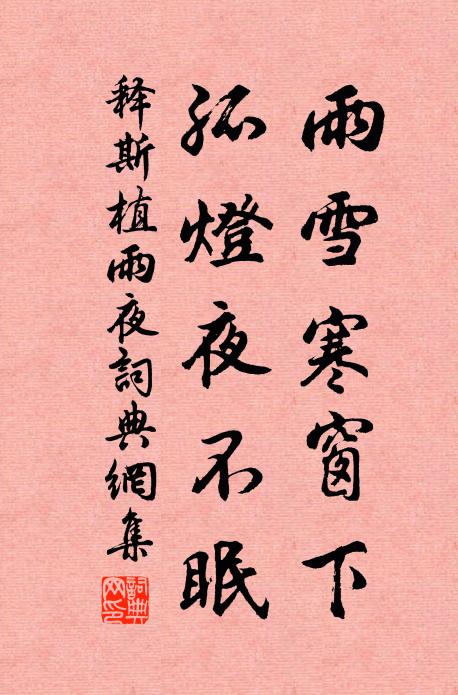 雨雪寒窗下
孤燈夜不眠
释斯植雨夜詞典網集
詞典網印